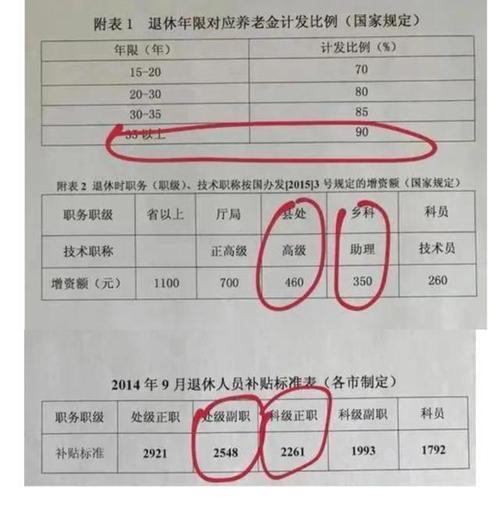 附表 1 退休年限对应养老金计发比例（国家规定）
年限（年） 计发比例（%）
15-20 70
20-30 80
30-35 85
35 以上 90
附表 2 退休时职务（职级）、技术职称按国办发[2015]3 号规定的增资额（国家规定）
职务职级 省以上 厅局 县处 乡科 科员
技术职称 正高级 高级 助理 技术员
增资额（元） 1100 700 460 350 260
2014 年 9 月退休人员补贴标准表（各市制定）
职务职级 处级正职 处级副职 科级正职 科级副职 科员
补贴标准 2921 2548 2261 1993 1792